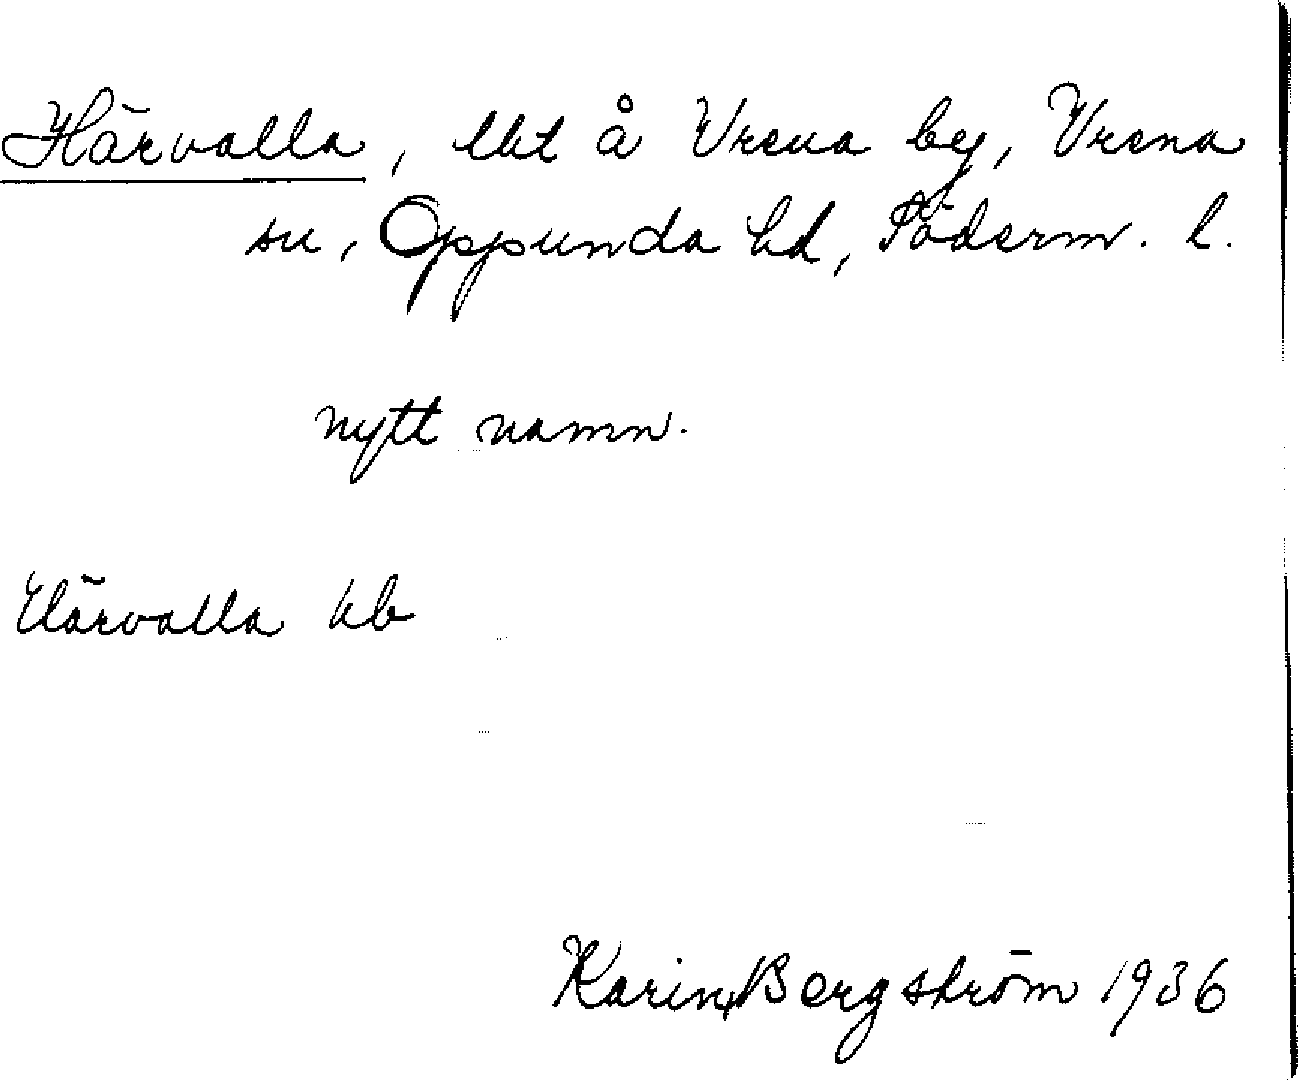 Härvalla, lht å Vrena by, Vrena
sn, Oppunda hd, Söderm. l.
nytt namn.
Härvalla kb
Karin Bergström 1936